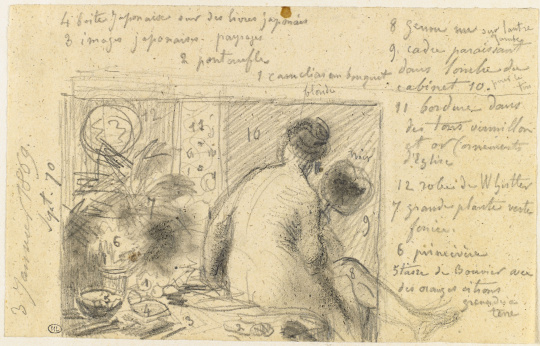 4 boite japonaise sur des livres japonais
3 images japonaises. paysage
2 pantoufle
1 camelias en bouquet
blonde
8 genou nu sur l'autre
jambe
9. cadre paraissant
dans l'ombre du
cabinet 10.
11 bordure dans
des tons vermillon
et or (ornements
d'Eglise
12 robe de Whistler
7 grande plante verte
foncée.
6 primevère
5 tasse de avec
des oranges citrons
grenades à
terre
3 Janvier 1869.
Sept. 70
12
11
10
noir
9
8
6
5
4
3
2